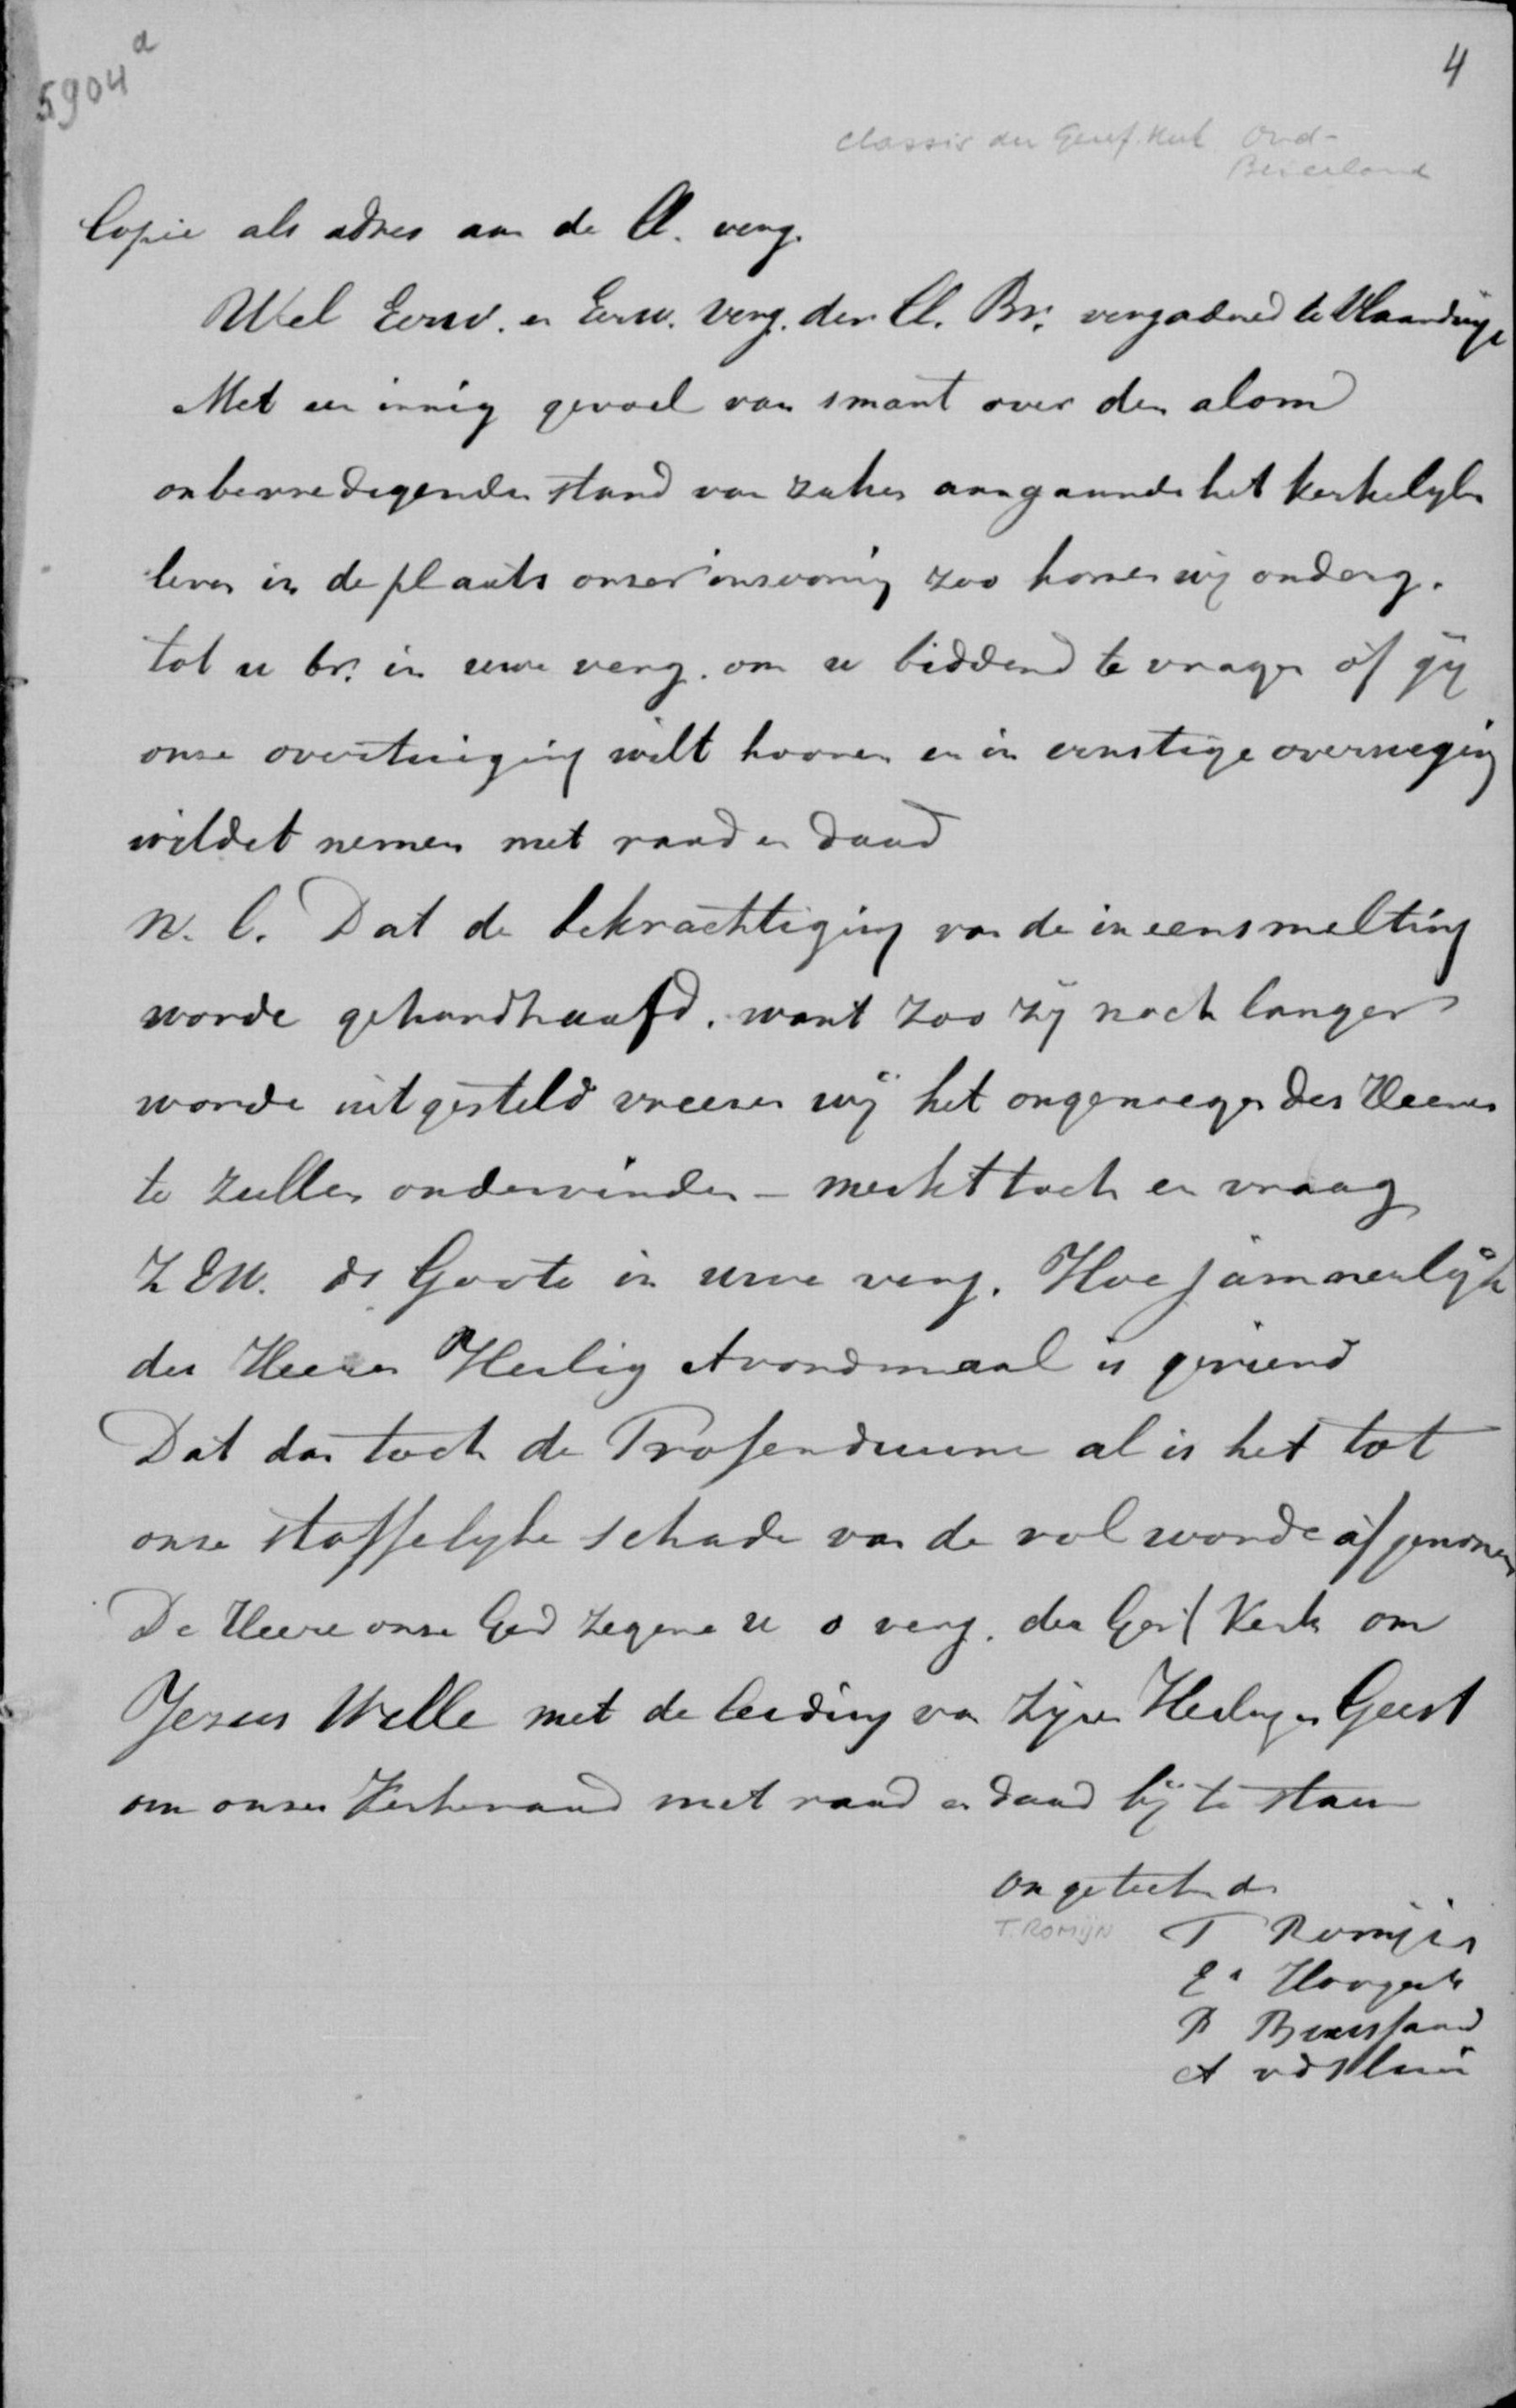 5904 a
4
classis der Geref. Kerk Oud-
Beierland
Copie als adres aan de Cl. verg.
Wel Eerw. en Eerw. Verg. der Cl. Br. vergaderd te Vlaardinge
Met een innig gevoel van smart over den alom
onbevredigenden stand van zaken aangaande het kerkelyke
leven in de plaats onzer inwoning zoo komen wij onderg.
tot u br. in uwe verg. om u biddend te vragen of gij
onze overtuiging wilt hooren en in ernstige overweging
wildet nemen met raad en daad
N. l. Dat de bekrachtiging van de ineensmelting
worde gehandhaafd. want zoo zij noch langer
worde uitgesteld vreezen wij het ongenoegen des Heeren
te zullen ondervinden - merkt toch en vraag
Z EW. ds Goote in uwe verg. Hoe jammerlijk
des Heeren Heilig Avondmaal is gevierd
Dat dan toch de al is het tot
onze stoffelyke schade van de rol worde afgenomen
De Heere onze God zegene u o verg. der Geref Kerk om
Jezus Wille met de leiding van Zijnen Heiligen Geest
om onzen Kerkeraad met raad en daad bij te staan
Ongeteekenden
T. ROMIJN T Romijn
P
A vd Sluis